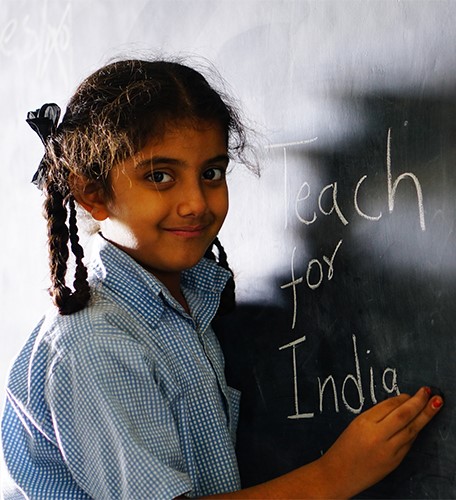 Teach
for
India